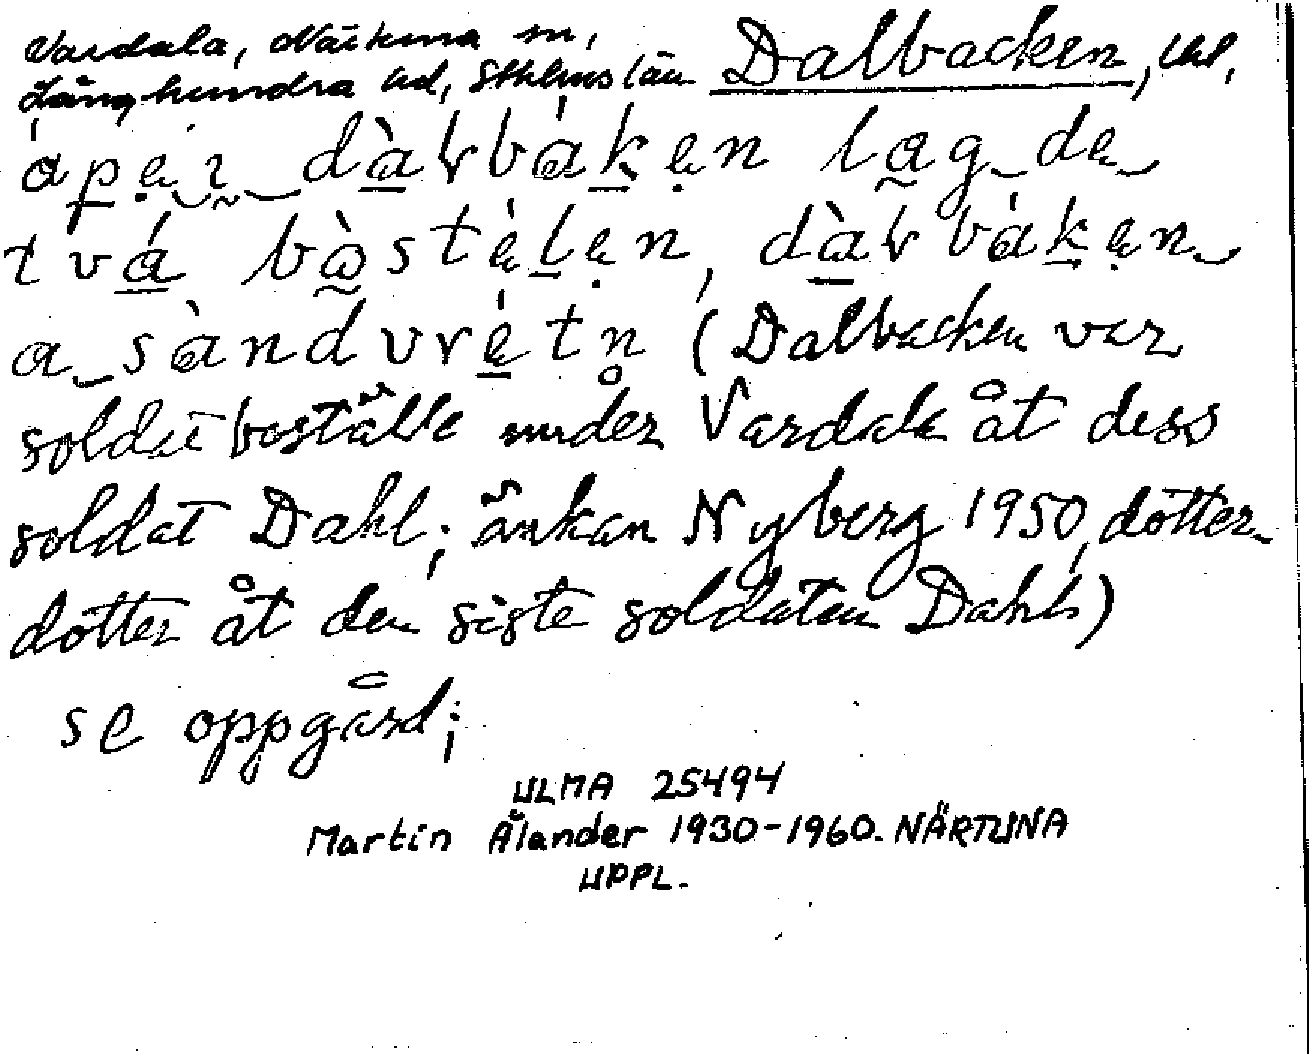 Vardala, Närtuna sn,
Långhundra hd, Sthlms län Dalbacken, lht.
dàɽbákən lag də
två bòstèlən, dàɽbákən
a sàndvrétn (Dalbacken var
soldatboställe under Vardala åt dess
soldat Dahl; änkan Nyberg 1950, dotter-
dotter åt den siste soldaten Dahl)
se oppgård;
ULMA 25494
Martin Ålander 1930-1960. NÄRTUNA
UPPL.